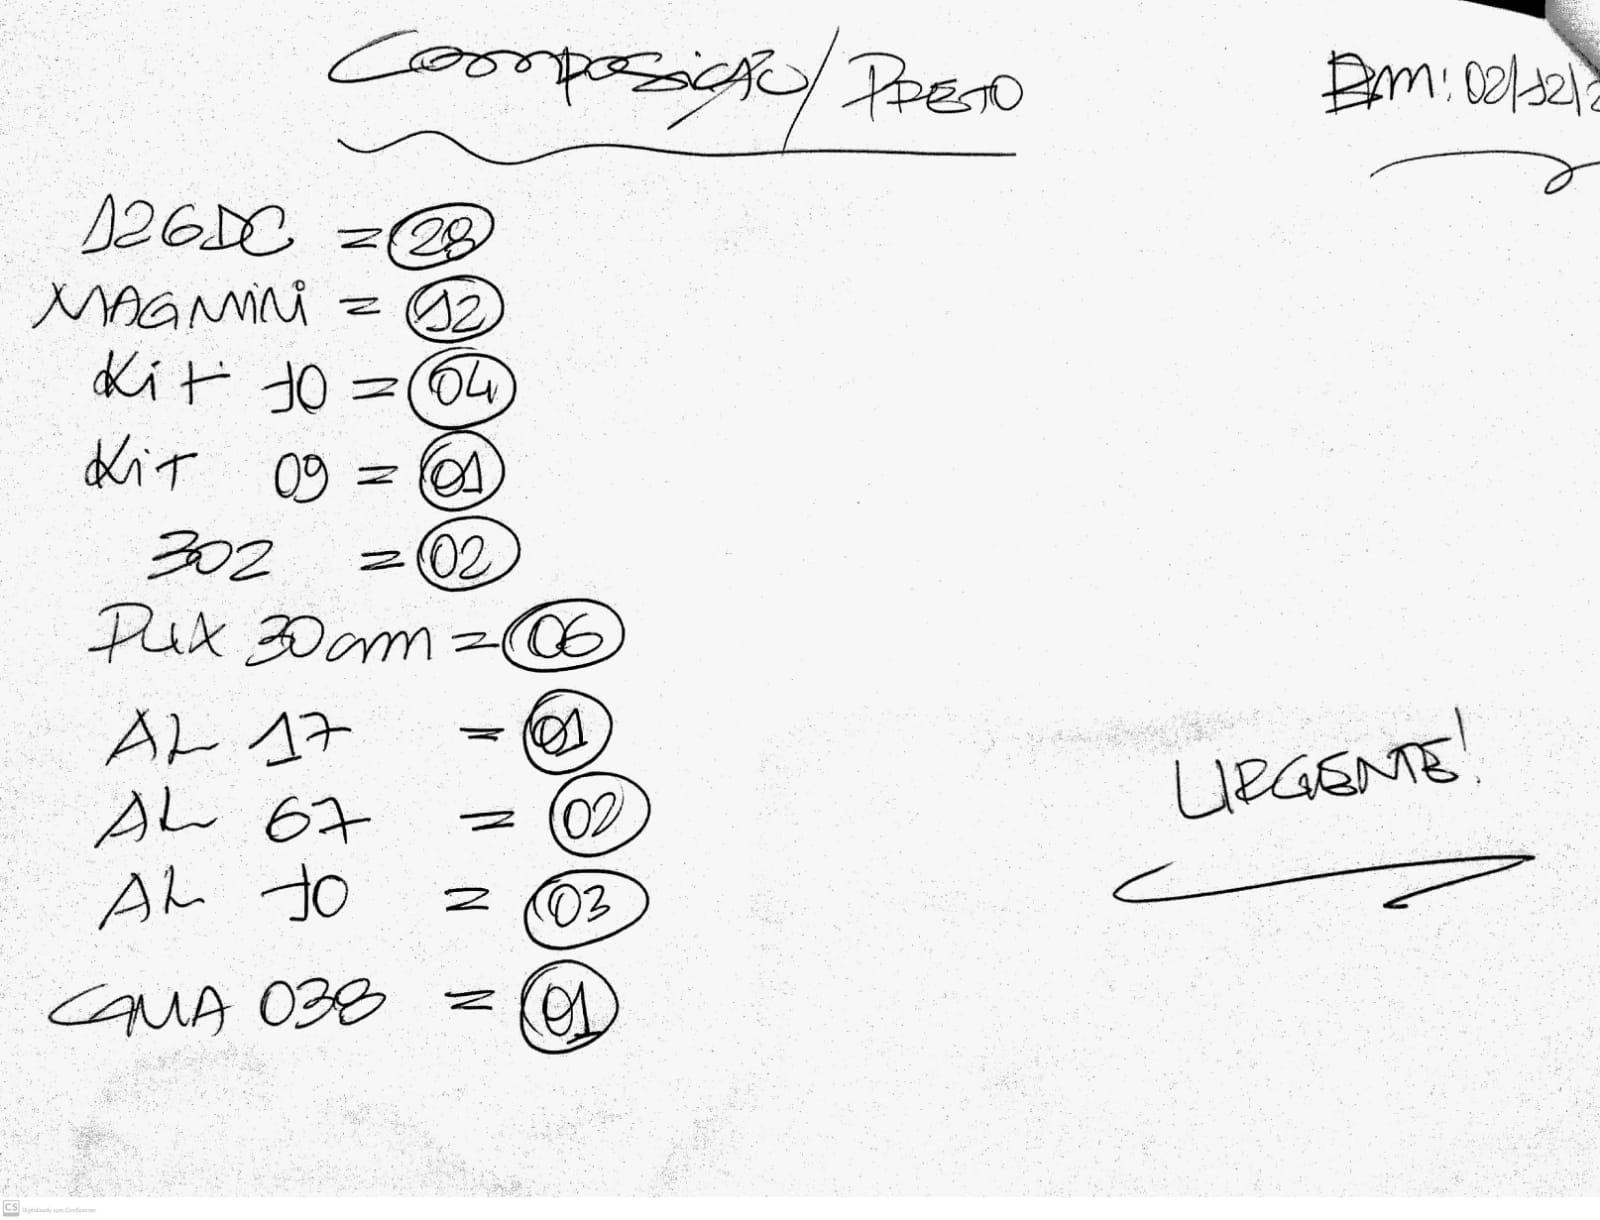 Composição/PRETO
Em: 02/12/2
126DC = 28
MAGMINI = 12
Kit 10 = 04
Kit 09 = 01
302 = 02
PUX 30cm = 06
AL 17 = 01
AL 67 = 02
AL 10 = 03
038 = 01
URGENTE!
CS Digitalizado com CamScanner